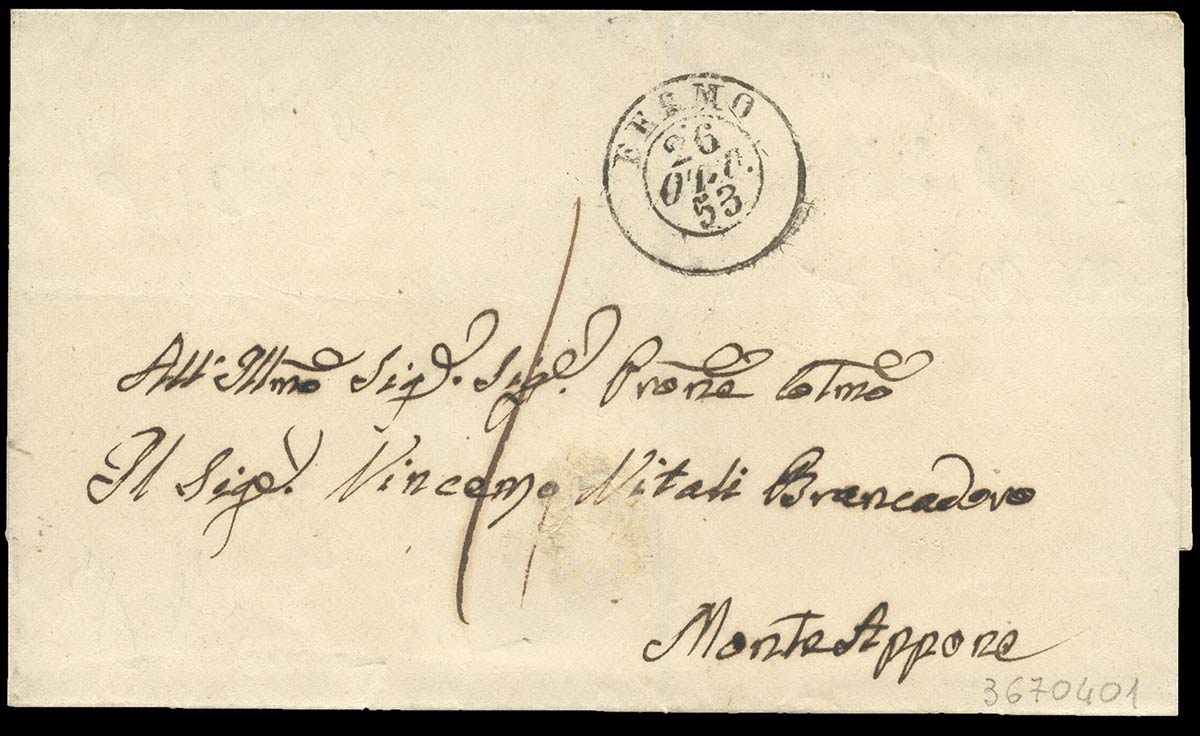 FERMO
26
OTT.
53
All' Illmo Sigr. Sigr. Prone Colmo
Il Sigr. Vincenzo Vitali Brancadoro
Monte Appone
3670401